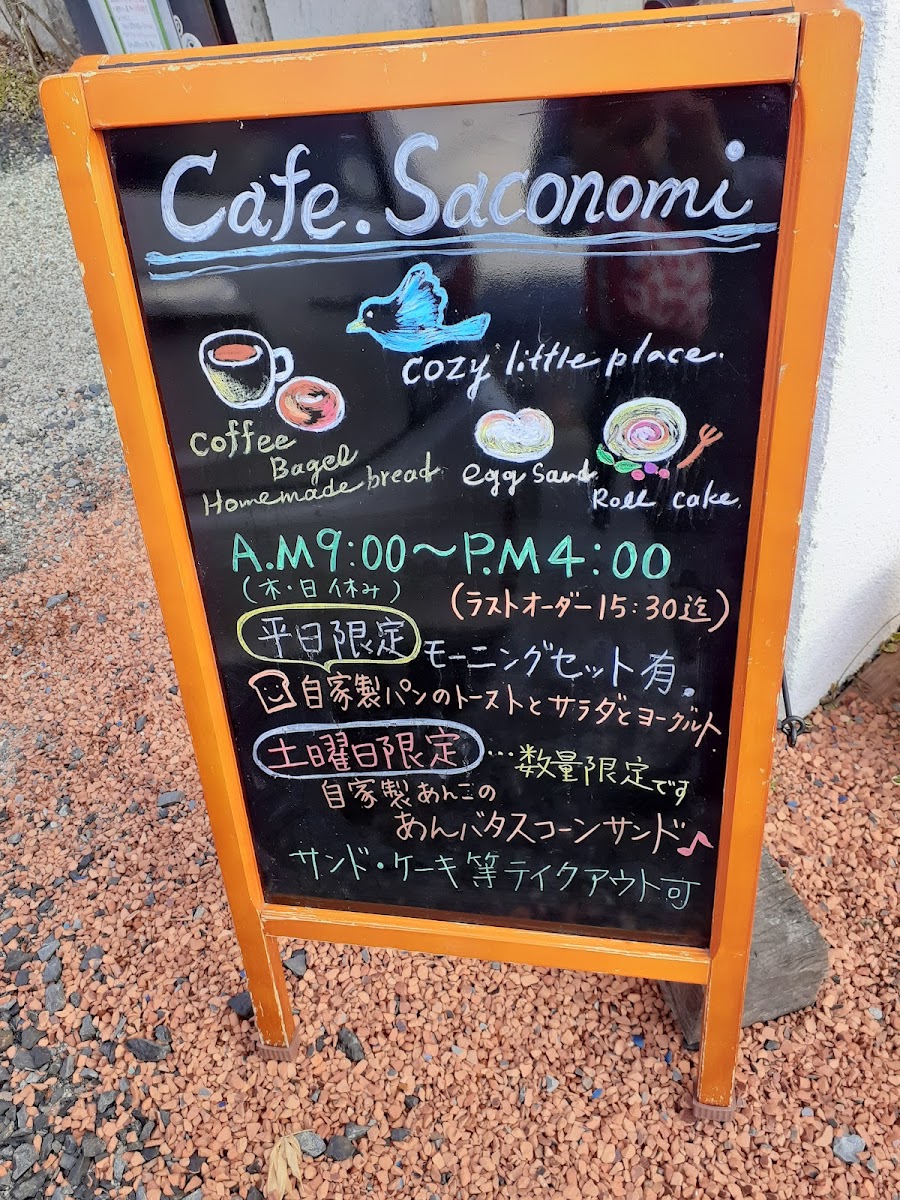 Cafe. Saconomi
cozy little place.
Coffee
Bagel
Homemade bread
egg sand
Roll cake.
A.M9:00〜P.M4:00
(木・日休み)
(ラストオーダー15:30迄)
平日限定 モーニングセット有。
自家製パンのトーストとサラダとヨーグルト
土曜日限定 …数量限定です
自家製あんこの
あんバタスコーンサンド♪
サンド・ケーキ等テイクアウト可